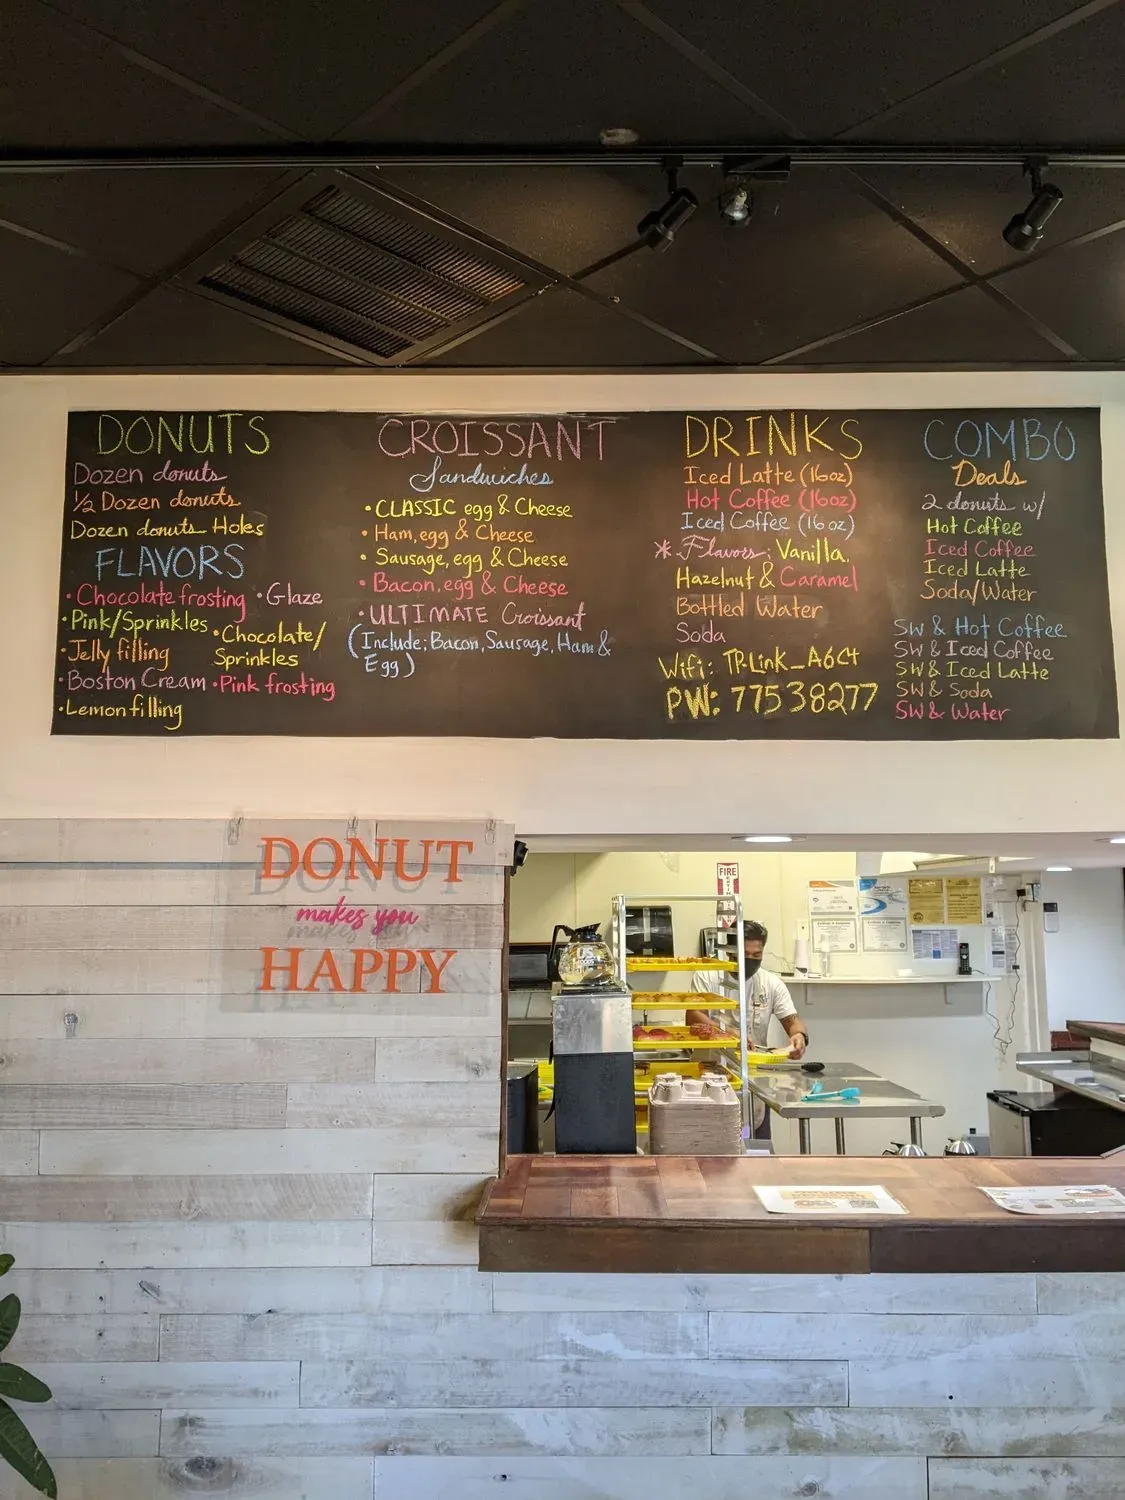 DONUTS
Dozen donuts
1/2 Dozen donuts
Dozen donuts Holes
FLAVORS
• Chocolate frosting
• Glaze
• Pink/Sprinkles
• Chocolate/
Sprinkles
• Jelly filling
• Boston Cream
• Pink frosting
• Lemon filling
CROISSANT
Sandwiches
• CLASSIC egg & Cheese
• Ham, egg & Cheese
• Sausage, egg & Cheese
• Bacon, egg & Cheese
• ULTIMATE Croissant
(Include; Bacon, Sausage, Ham &
Egg)
DRINKS
Iced Latte (16oz)
Hot Coffee (16oz)
Iced Coffee (16oz)
* Flavors: Vanilla,
Hazelnut & Caramel
Bottled Water
Soda
Wifi: TP-Link_A6C4
PW: 77538277
COMBO
Deals
2 donuts w/
Hot Coffee
Iced Coffee
Iced Latte
Soda/Water
SW & Hot Coffee
SW & Iced Coffee
SW & Iced Latte
SW & Soda
SW & Water
DONUT
makes you
HAPPY
FIRE